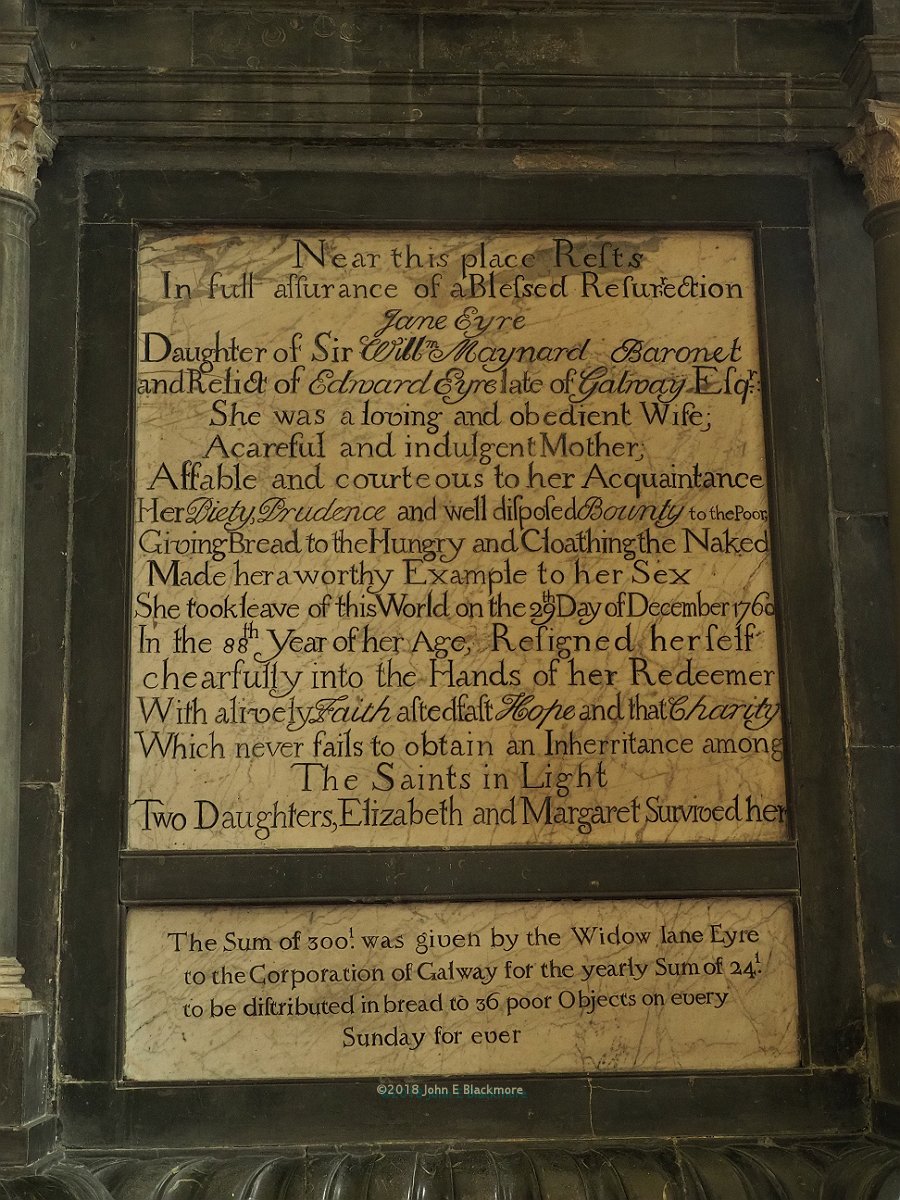 Near this place Reſts
In full aſſurance of a Bleſsed Reſurrection
Jane Eyre
Daughter of Sir Willm Maynard Baronet
and Relict of Edward Eyre late of Galway Eſqr:
She was a loving and obedient Wife;
A careful and indulgent Mother;
Affable and courteous to her Acquaintance
Her Piety, Prudence and well diſpoſed Bounty to the Poor,
Giving Bread to the Hungry and Cloathing the Naked
Made her a worthy Example to her Sex
She took leave of this World on the 29th Day of December 1760
In the 88th Year of her Age, Reſigned herſelf
chearfully into the Hands of her Redeemer
With a lively Faith a ſtedfaſt Hope and that Charity
Which never fails to obtain an Inherritance among
The Saints in Light
Two Daughters, Elizabeth and Margaret Survived her
The Sum of 300l. was given by the Widow Iane Eyre
to the Corporation of Galway for the yearly Sum of 24l.
to be diſtributed in bread to 36 poor Objects on every
Sunday for ever
©2018 John E Blackmore